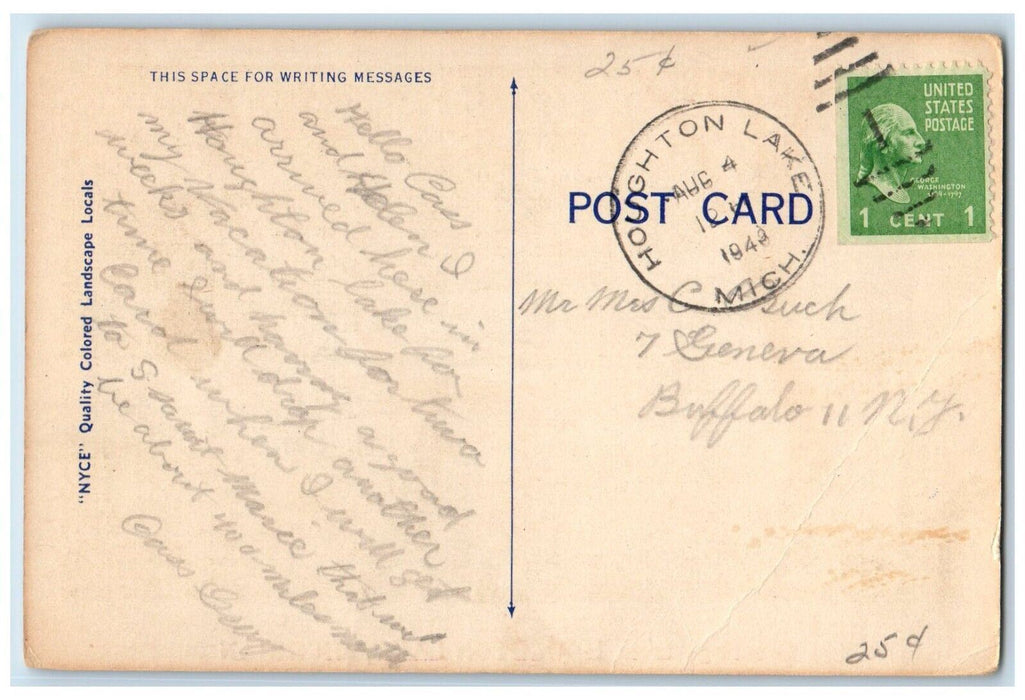 THIS SPACE FOR WRITING MESSAGES
"NYCE" Quality Colored Landscape Locals
Hello Cass
and Helen I
arrived here in
Houghton lake for
my Vacation for two
weeks and having a good
time I will drop another
card when I will get
to S Saint Marie that will
be about miles north
Cass
25¢
HOUGHTON LAKE
AUG 4
194
MICH.
UNITED
STATES
POSTAGE
GEORGE
WASHINGTON
1 CENT 1
POST CARD
Mr Mrs C Buch
7 Geneva
Buffalo 11 N.Y.
25¢